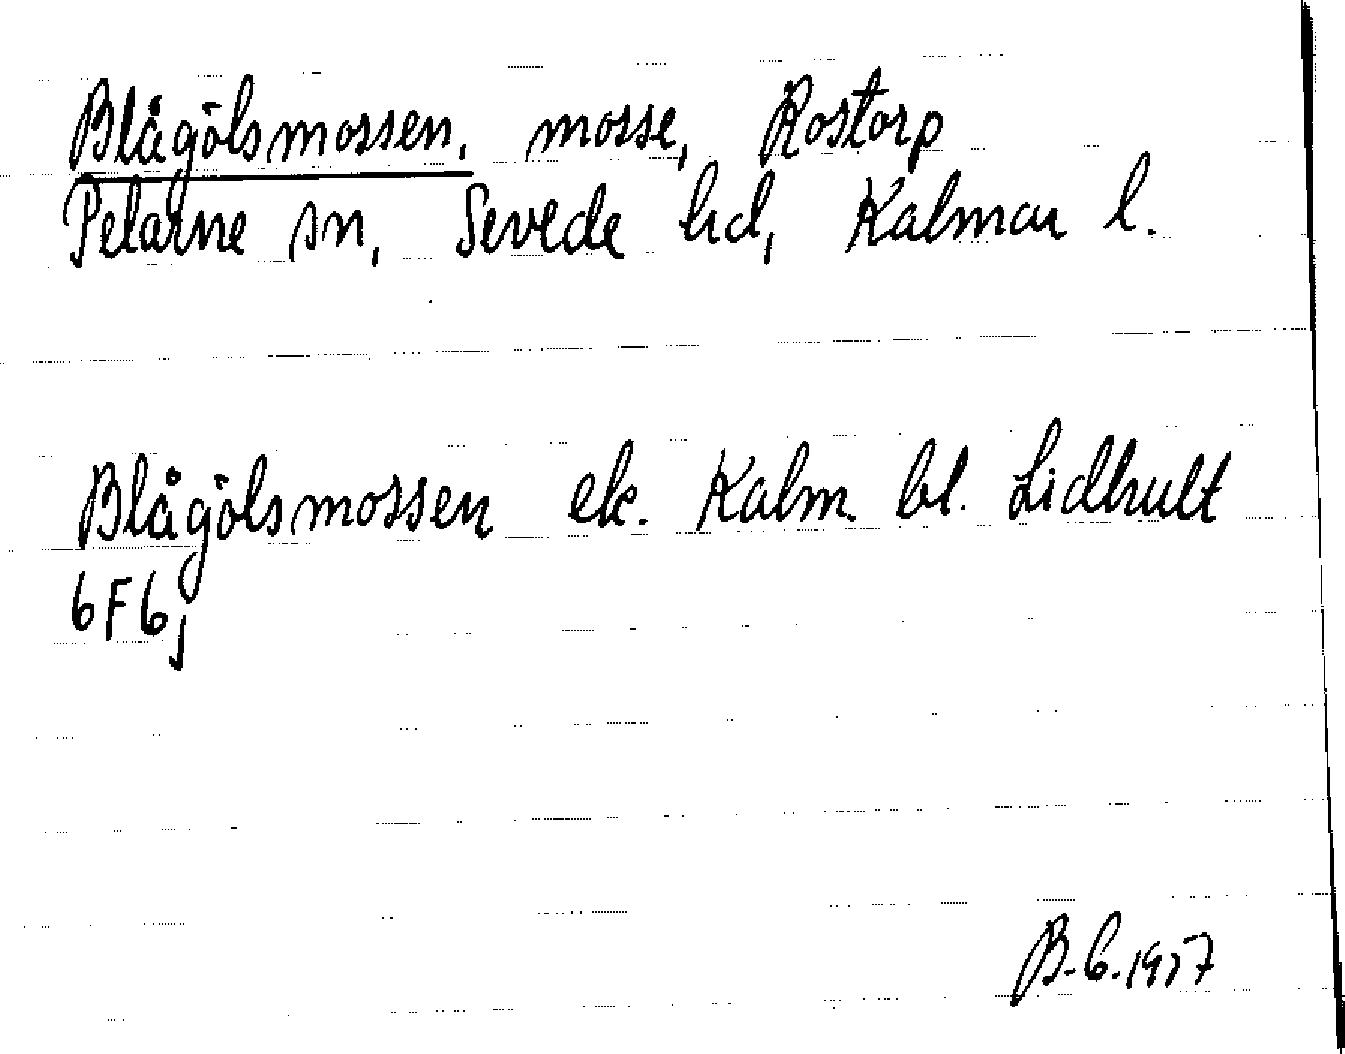 Blågölsmossen, mosse, Rostorp
Pelarne sn, Sevede hd, Kalmar l.
Blågölsmossen ek. Kalm. bl. Lidhult
6F6j